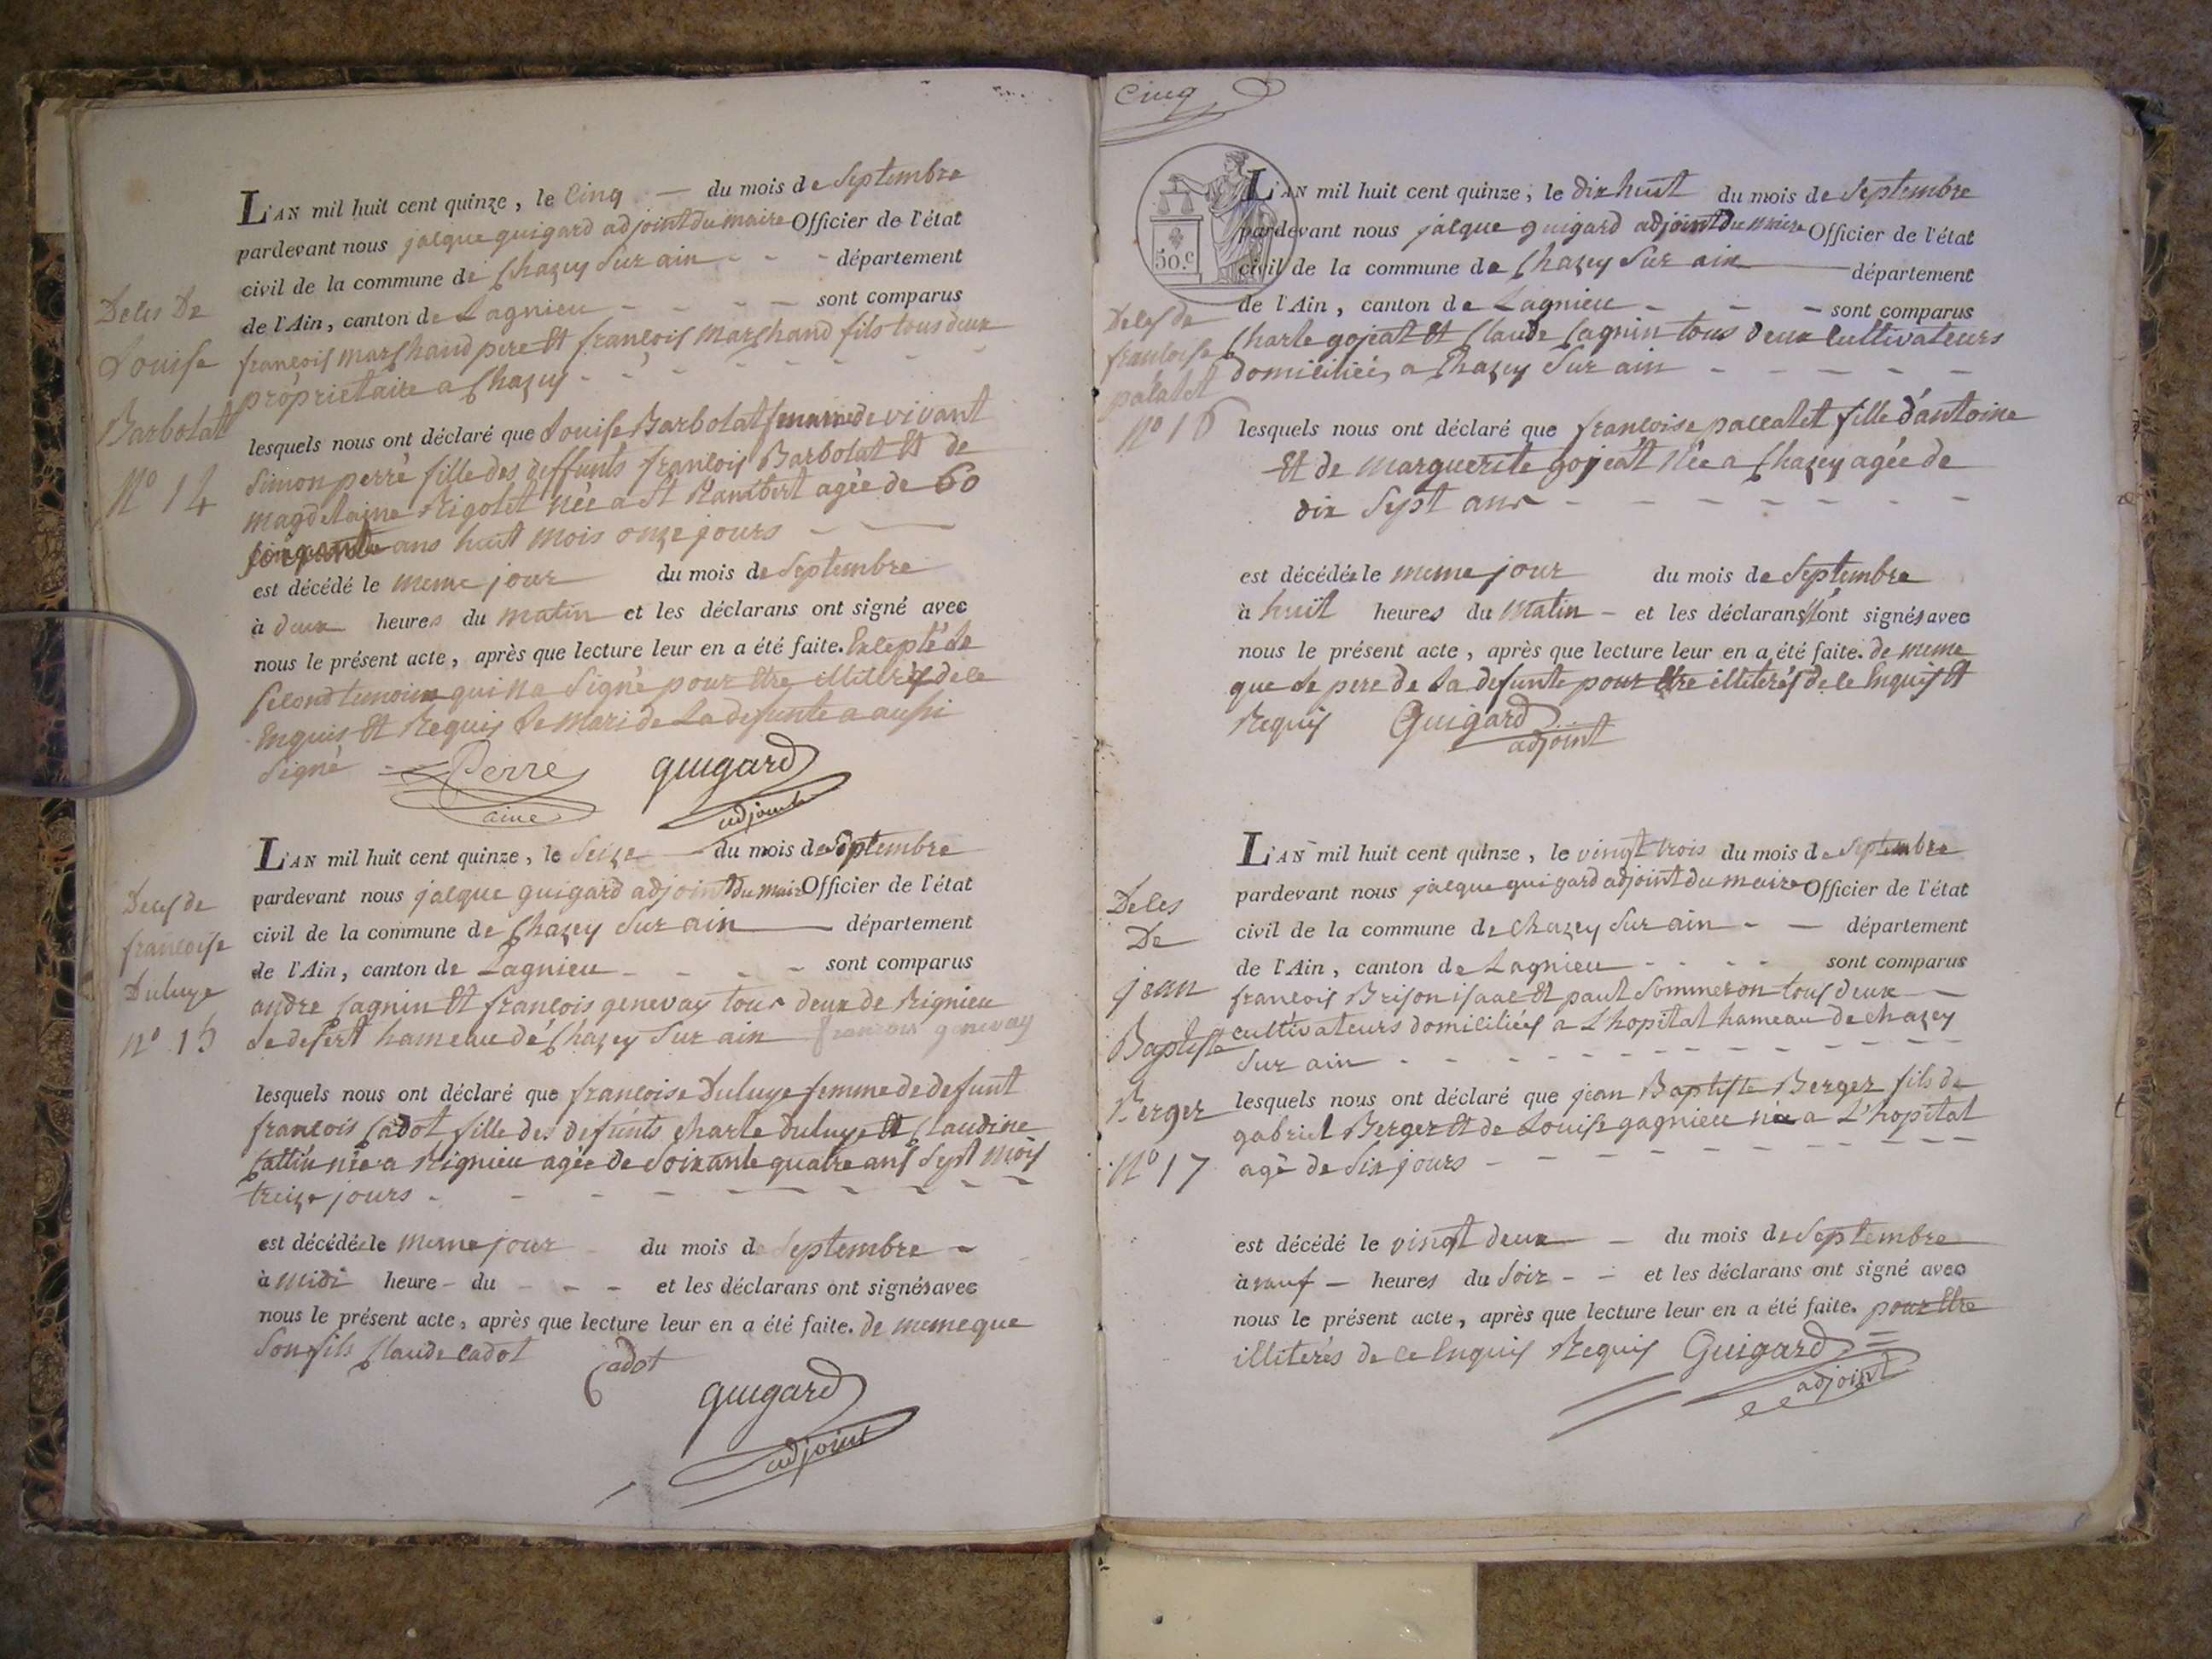 L'AN mil huit cent quinze, le Cinq — du mois de Septembre
pardevant nous jacque guigard adjoint du maire Officier de l'état
civil de la commune de Chazey Sur ain - - - département
de l'Ain, canton de Lagnieu - - - - sont comparus
françois marchand pere Et françois marchand fils tous deux
propriétaire a Chazey - - - - - - -
Deces De
Louise
Barbolat
No 14
lesquels nous ont déclaré que Louise Barbolat femme de vivant
Simon perré fille des deffunts françois Barbolat Et de
magdelaine Rigolet née a St Rambert agée de 60
ans huit mois onze jours - —
est décédé le meme jour du mois de Septembre
à deux heures du matin et les déclarans ont signé avec
nous le présent acte, après que lecture leur en a été faite. Excepté le
Second temoin qui na Signé pour Etre de ce
Enquis Et Requis Le mari de La defunte a aussi
Signé Perre guigard
ainé adjoint
L'AN mil huit cent quinze, le Seize — du mois de Septembre
pardevant nous jacque guigard adjoint du maire Officier de l'état
civil de la commune de Chazey Sur ain — département
de l'Ain, canton de Lagnieu - - - - sont comparus
andre Cagnin Et françois genevay tous deux de Rignieu
le desert hameau de Chazey Sur ain françois genevay
Deces de
francoise
Duluye
no 15
lesquels nous ont déclaré que francoise Duluye femme de defunt
françois Cadot fille des defunts charle duluye Et Claudine
Cattin née a Rignieu agée de Soixante quatre ans Sept mois
treize jours - - - - - - - - -
est décédée le meme jour - du mois de Septembre -
à midi heure - du - - - et les déclarans ont signés avec
nous le présent acte, après que lecture leur en a été faite. de meme que
Son fils Claude Cadot Cadot
guigard
adjoint
Cinq
50.c
L'AN mil huit cent quinze, le dix huit du mois de Septembre
pardevant nous jacque guigard adjoint du maire Officier de l'état
civil de la commune de Chazey Sur ain — département
de l'Ain, canton de Lagnieu - - - sont comparus
Charle gojeat Et Claude Cagnin tous deux Cultivateurs
domiciliés a Chazey Sur ain - - - - -
Deces de
francoise
palatet
no 16
lesquels nous ont déclaré que francoise pallatet fille d'antoine
Et de marguerite gojeat Née a Chazey agée de
dix Sept ans - - - - - - -
est décédée le meme jour du mois de Septembre
à huit heures du matin - et les déclarans n'ont signés avec
nous le présent acte, après que lecture leur en a été faite. de meme
que le pere de La defunte pour Etre illiterés de ce Enquis Et
Requis Guigard
adjoint
L'AN mil huit cent quinze, le vingt trois du mois de Septembre
pardevant nous jacque guigard adjoint du maire Officier de l'état
civil de la commune de chazey Sur ain - — département
de l'Ain, canton de Lagnieu - - - - sont comparus
françois Brison isaac Et paul Sommeron tous deux —
cultivateurs domiciliiés a L'hopital hameau de chazey
Sur ain - - - - - - - - - - -
Deces
De
jean
Baptiste
Berger
No 17
lesquels nous ont déclaré que jean Baptiste Berger fils de
gabriel Berger Et de Louise gagnieu né a L'hopital
agé de Six jours - - - - - - - - -
est décédé le vingt deux — - du mois de Septembre
à neuf — heures du Soir - - et les déclarans ont signé avec
nous le présent acte, après que lecture leur en a été faite. pour Etre
illiterés de ce Enquis Requis Guigard
adjoint